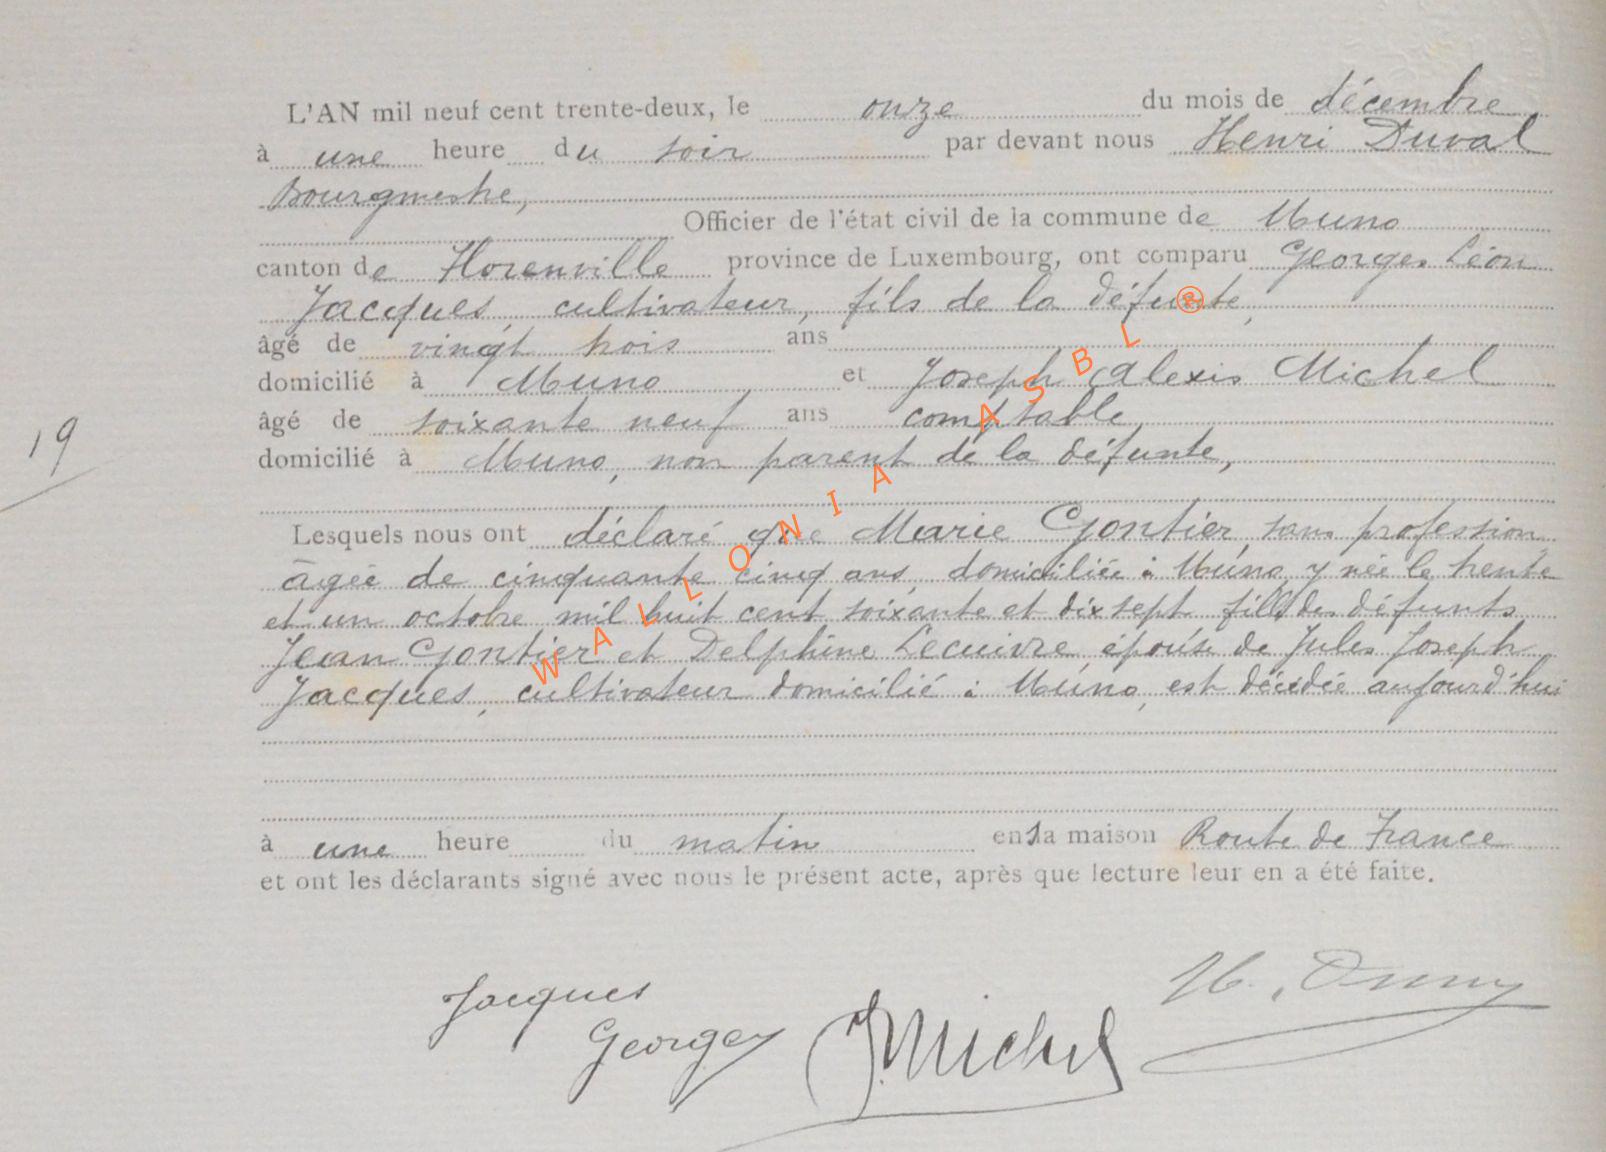 L'AN mil neuf cent trente-deux, le onze du mois de décembre
à une heure du soir par devant nous Henri Duval
Bourgmestre,
Officier de l'état civil de la commune de Muno
canton de Florenville province de Luxembourg, ont comparu Georges Léon
Jacques, cultivateur, fils de la défunte,
âgé de vingt trois ans
domicilié à Muno et Joseph Alexis Michel
âgé de soixante neuf ans comptable
19
domicilié à Muno, non parent de la défunte,
Lesquels nous ont déclaré que Marie Gontier, sans profession,
âgée de cinquante cinq ans, domiciliée à Muno, y née le trente
et un octobre mil huit cent soixante et dix sept fille des défunts
Jean Gontier et Delphine Lecuivre, épouse de Jules Joseph
Jacques, cultivateur domicilié à Muno, est décédée aujourd'hui
à une heure du matin en sa maison Route de France
et ont les déclarants signé avec nous le présent acte, après que lecture leur en a été faite.
Jacques
Georges
J. Michel
H.
WALLONIA ASBL ®